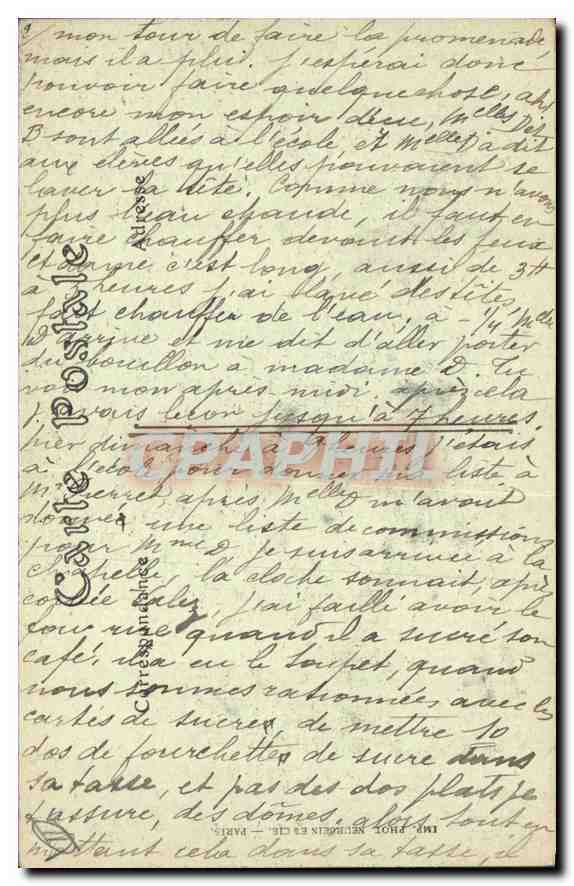 mon tour de faire la promenade
mais il a plu. J'espérai donc
pouvoir faire quelque chose, ah
encore mon espoir déçu, Melles D et
B sont allées à l'école, et Melle D a dit
aux élèves qu'elles pouvaient se
laver la tête. Comme nous n'avons
plus d'eau chaude, il faut en
faire chauffer devant les feux
et dame c'est long, aussi de 3h
à heures j'ai lavé des têtes,
fait chauffer de l'eau, à 1/4 Melle
D arrive et me dit d'aller porter
du bouillon a madame D. Tu
vois mon après midi. après cela
j'avais leçon jusqu'à 7 heures.
hier dimanche à heures j'étais
à l'école pour donner une liste à
M Pierret, après Melle D m'avait
donné une liste de commissions
pour Mme D. Je suis arrivée à la
Chapelle, la cloche sonnait, après
j'ai failli avoir le
fou rire quand il a sucré son
café, il a eu le toupet, quand
nous sommes rationnées avec les
cartes de sucre, de mettre 10
dos de fourchettes de sucre dans
sa tasse, et pas des dos plats je
t'assure, des dômes, alors tout en
mettant cela dans sa tasse, il
Carte Postale
Correspondance
Adresse
CPAPHIL
IMP. PHOT. NEURDEIN ET CIE. — PARIS.